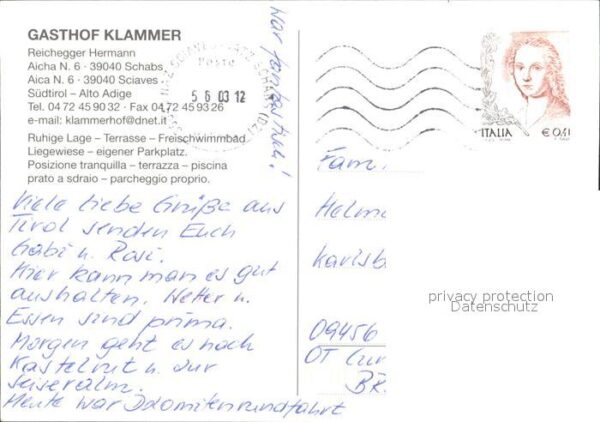 GASTHOF KLAMMER
Reichegger Hermann
Aicha N. 6 · 39040 Schabs
Aica N. 6 · 39040 Sciaves
Südtirol – Alto Adige
Tel. 04 72 45 90 32 · Fax 04 72 45 93 26
e-mail: klammerhof@dnet.it
Ruhige Lage – Terrasse – Freischwimmbad
Liegewiese – eigener Parkplatz.
Posizione tranquilla – terrazza – piscina
prato a sdraio – parcheggio proprio.
Viele liebe Grüße aus
Tirol senden Euch
Gabi u. Rosi.
Hier kann man es gut
aushalten. Wetter u.
Essen sind prima.
Morgen geht es nach
Kastelrut u. zur
Seiseralm.
Heute war Dolomitenrundfahrt
war fantastisch!
Poste
5 6 03 12
ITALIA
€ 0,41
Fam.
Helm
Karlsb
09456
OT
privacy protection
Datenschutz